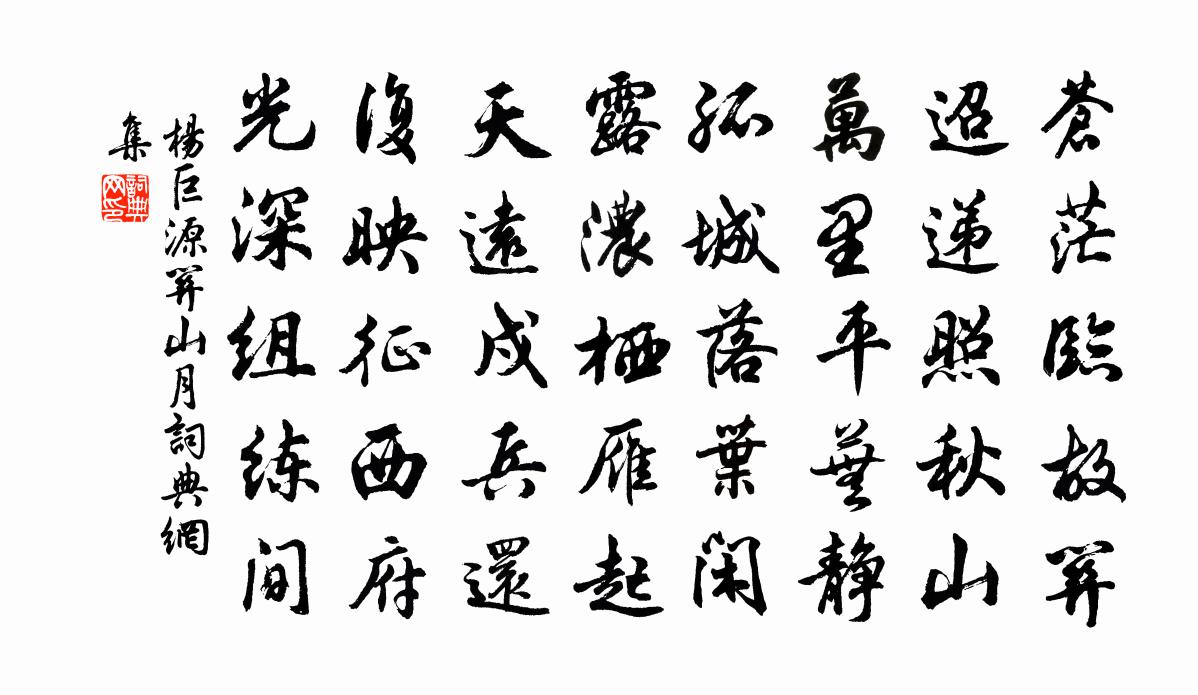 蒼茫臨故關
迢遞照秋山
萬里平蕪靜
孤城落葉閑
露濃栖雁起
天遠戍兵還
復映征西府
光深組练間
楊巨源關山月詞典網
集
詞典網印